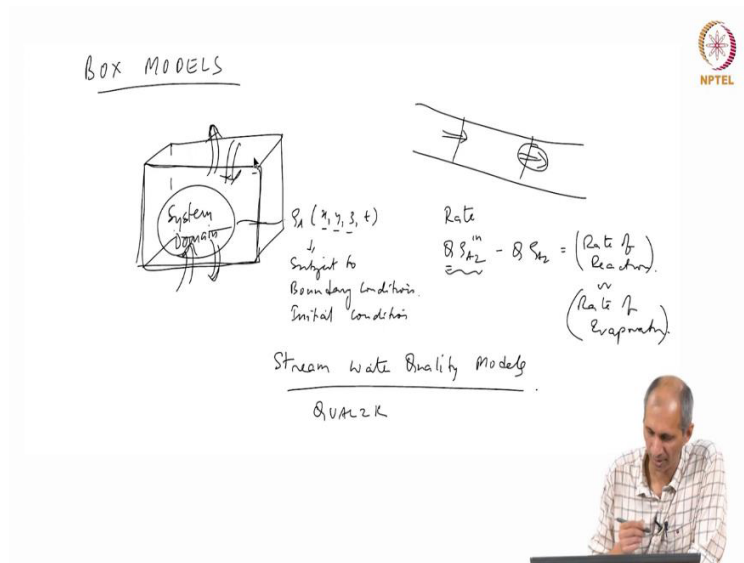 BOX MODELS
NPTEL
System
Domain
ρA (x, y, z, t)
Subject to
Boundary Condition.
Initial Condition
Rate
Q ρA2 in - Q ρA2 = (Rate of Reaction)
or
(Rate of Evaporatn).
Stream Wate Quality Models
QUAL2K